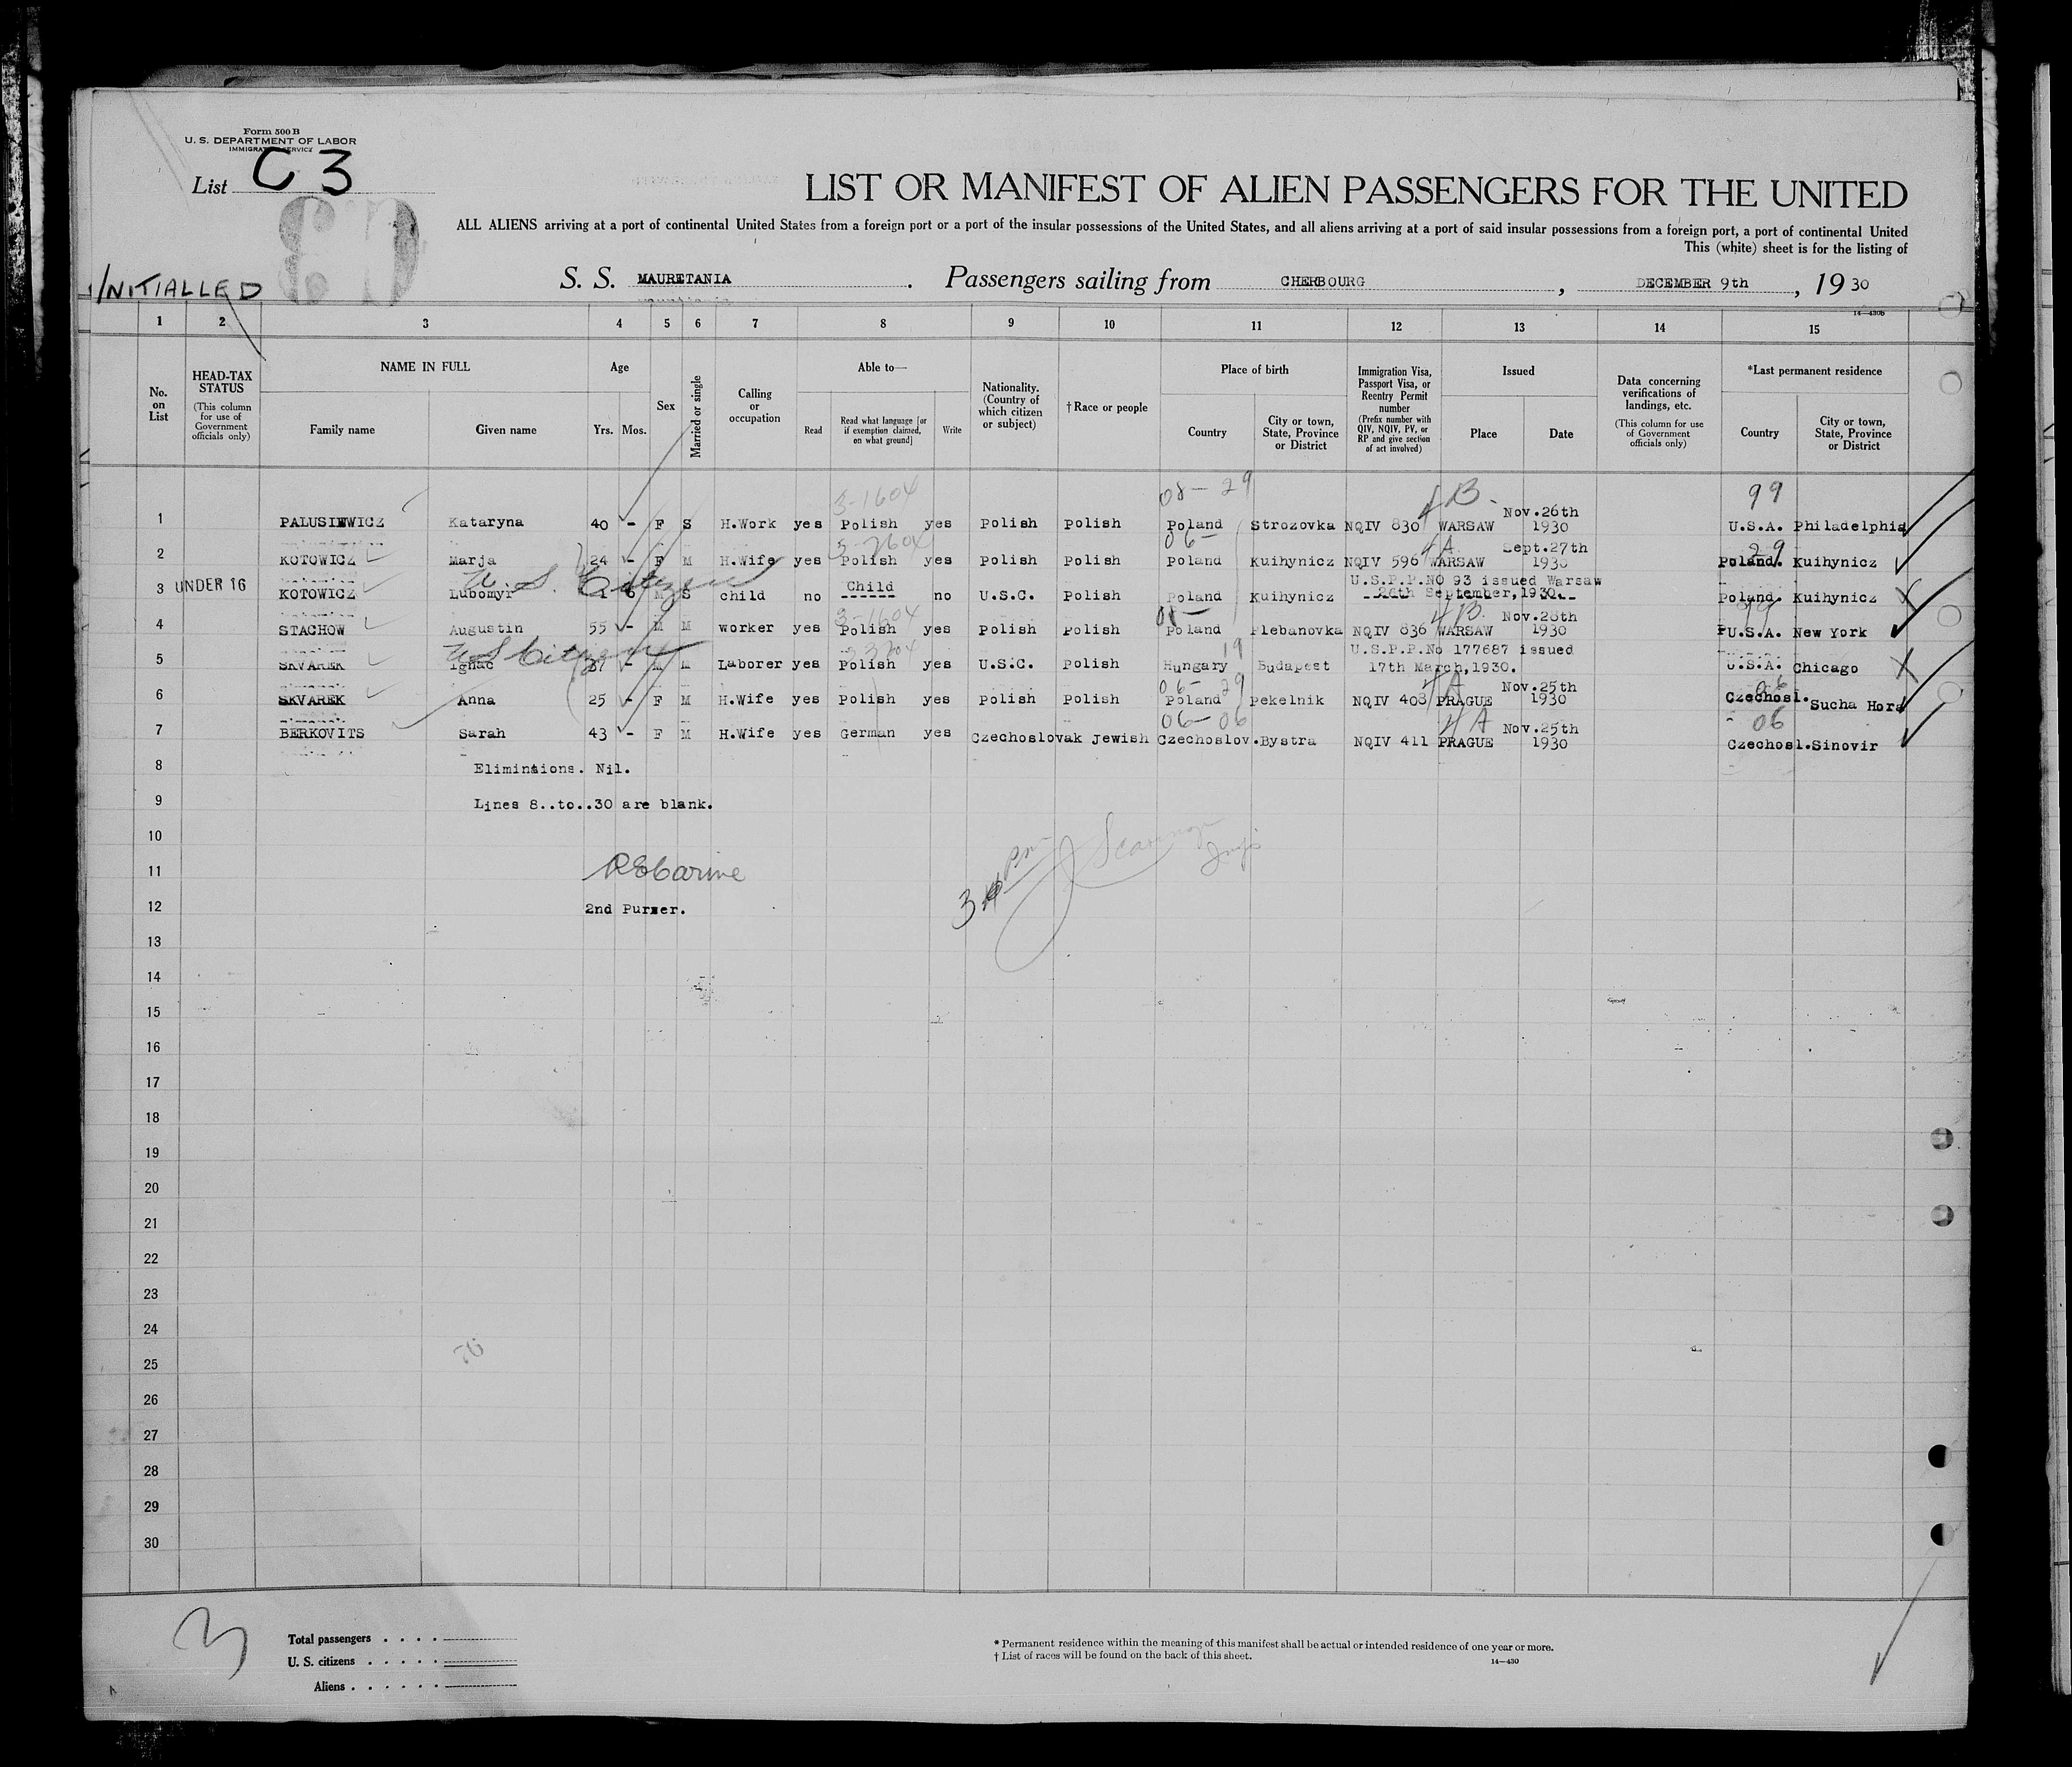 Form 500 B
U. S. DEPARTMENT OF LABOR
IMMIGRATION SERVICE
List C 3
C3
INITIALLED
LIST OR MANIFEST OF ALIEN PASSENGERS FOR THE UNITED
ALL ALIENS arriving at a port of continental United States from a foreign port or a port of the insular possessions of the United States, and all aliens arriving at a port of said insular possessions from a foreign port, a port of continental United
This (white) sheet is for the listing of
S. S. MAURETANIA . Passengers sailing from CHERBOURG , DECEMBER 9th , 19 30
14—430b
1 2 3 4 5 6 7 8 9 10 11 12 13 14 15
No. on List
HEAD-TAX STATUS (This column for use of Government officials only)
NAME IN FULL
Family name Given name
Age
Yrs. Mos.
Sex
Married or single
Calling or occupation
Able to—
Read
Read what language [or if exemption claimed, on what ground]
Write
Nationality. (Country of which citizen or subject)
†Race or people
Place of birth
Country
City or town, State, Province or District
Immigration Visa, Passport Visa, or Reentry Permit number (Prefix number with QIV, NQIV, PV, or RP and give section of act involved)
Issued
Place Date
Data concerning verifications of landings, etc. (This column for use of Government officials only)
*Last permanent residence
Country
City or town, State, Province or District
3-1604 08-29 4B. 99
1 PALUSIEWICZ Kataryna 40 - F S H.Work yes Polish yes Polish Polish Poland Strozovka NQIV 830 WARSAW Nov.26th 1930 U.S.A. Philadelphia
06- 4A 29
2 KOTOWICZ Marja 24 - F M H.Wife yes Polish yes Polish Polish Poland Kuihynicz NQIV 596 WARSAW Sept.27th 1930 Poland. Kuihynicz
U. S. Citizen
3 UNDER 16 KOTOWICZ Lubomyr 1 6 M S child no Child no U.S.C. Polish Poland Kuihynicz U.S.P.P.NO 93 issued Warsaw 26th September,1930. Poland. Kuihynicz
3-1604 4B. 99
4 STACHOW Augustin 55 - M M worker yes Polish yes Polish Polish Poland Plebanovka NQIV 836 WARSAW Nov.28th 1930 U.S.A. New York
U S Citizen 19
5 SKVAREK Ignac 37 - M M Laborer yes Polish yes U.S.C. Polish Hungary Budapest U.S.P.P.No 177687 issued 17th March,1930. U.S.A. Chicago
06- 29 4A 06
6 SKVAREK Anna 25 - F M H.Wife yes Polish yes Polish Polish Poland Pekelnik NQIV 408 PRAGUE Nov.25th 1930 Czechosl. Sucha Hora
06-06 4A 06
7 BERKOVITS Sarah 43 - F M H.Wife yes German yes Czechoslovak Jewish Czechoslov. Bystra NQIV 411 PRAGUE Nov.25th 1930 Czechosl. Sinovir
8 Elimintions. Nil.
9 Lines 8..to..30 are blank.
10
11
12 2nd Purser.
13
14
15
16
17
18
19
20
21
22
23
24
25
26
27
28
29
30
3
Total passengers . . . .
U. S. citizens . . . . .
Aliens . . . . . .
* Permanent residence within the meaning of this manifest shall be actual or intended residence of one year or more.
† List of races will be found on the back of this sheet.
14—430